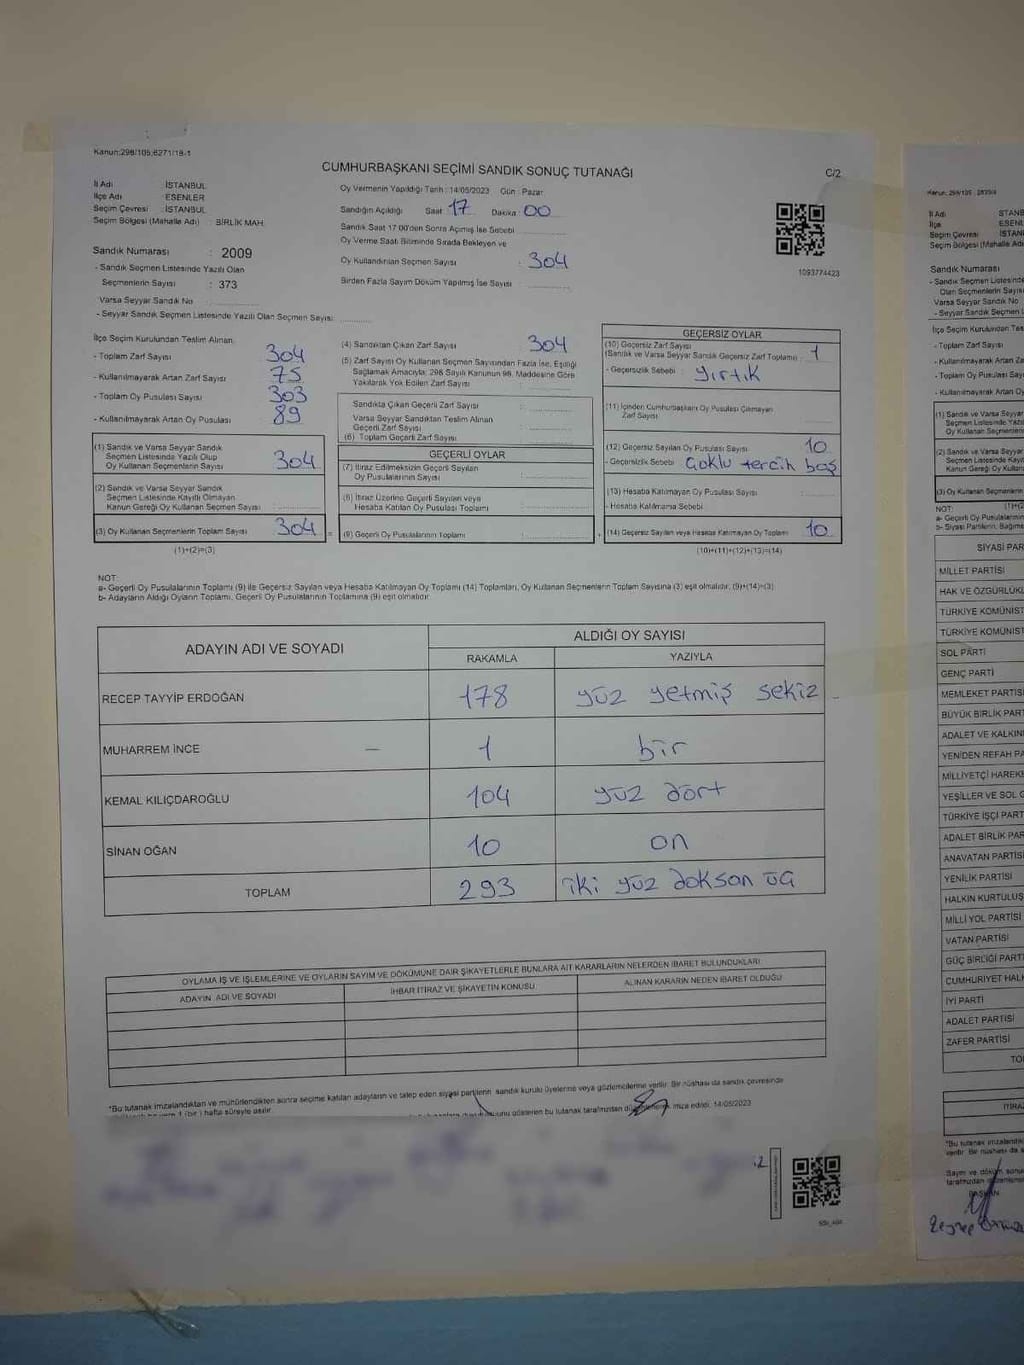 Kanun:298/105;6271/18-1
CUMHURBAŞKANI SEÇİMİ SANDIK SONUÇ TUTANAĞI
C/2
İl Adı : İSTANBUL
İlçe Adı : ESENLER
Seçim Çevresi : İSTANBUL
Seçim Bölgesi (Mahalle Adı) : BİRLİK MAH.
Sandık Numarası : 2009
- Sandık Seçmen Listesinde Yazılı Olan
Seçmenlerin Sayısı : 373
Varsa Seyyar Sandık No :
- Seyyar Sandık Seçmen Listesinde Yazılı Olan Seçmen Sayısı:
Oy Vermenin Yapıldığı Tarih : 14/05/2023 Gün : Pazar
Sandığın Açıldığı Saat 17 Dakika : 00
Sandık Saat 17.00'den Sonra Açılmış İse Sebebi
Oy Verme Saati Bitiminde Sırada Bekleyen ve
Oy Kullandırılan Seçmen Sayısı : 304
Birden Fazla Sayım Döküm Yapılmış İse Sayısı :
1093774423
İlçe Seçim Kurulundan Teslim Alınan;
- Toplam Zarf Sayısı 304
- Kullanılmayarak Artan Zarf Sayısı 75
- Toplam Oy Pusulası Sayısı 303
- Kullanılmayarak Artan Oy Pusulası 89
(1) Sandık ve Varsa Seyyar Sandık
Seçmen Listesinde Yazılı Olup
Oy Kullanan Seçmenlerin Sayısı 304
(2) Sandık ve Varsa Seyyar Sandık
Seçmen Listesinde Kayıtlı Olmayan
Kanun Gereği Oy Kullanan Seçmen Sayısı :
(3) Oy Kullanan Seçmenlerin Toplam Sayısı 304 =
(1)+(2)=(3)
(4) Sandıktan Çıkan Zarf Sayısı 304
(5) Zarf Sayısı Oy Kullanan Seçmen Sayısından Fazla İse, Eşitliği
Sağlamak Amacıyla; 298 Sayılı Kanunun 98. Maddesine Göre
Yakılarak Yok Edilen Zarf Sayısı :
Sandıkta Çıkan Geçerli Zarf Sayısı :
Varsa Seyyar Sandıktan Teslim Alınan
Geçerli Zarf Sayısı :
(6) Toplam Geçerli Zarf Sayısı :
GEÇERLİ OYLAR
(7) İtiraz Edilmeksizin Geçerli Sayılan
Oy Pusulalarının Sayısı :
(8) İtiraz Üzerine Geçerli Sayılan veya
Hesaba Katılan Oy Pusulası Toplamı :
(9) Geçerli Oy Pusulalarının Toplamı : +
GEÇERSİZ OYLAR
(10) Geçersiz Zarf Sayısı
(Sandık ve Varsa Seyyar Sandık Geçersiz Zarf Toplamı) : 1
- Geçersizlik Sebebi : yırtık
(11) İçinden Cumhurbaşkanı Oy Pusulası Çıkmayan
Zarf Sayısı
(12) Geçersiz Sayılan Oy Pusulası Sayısı 10
- Geçersizlik Sebebi Çoklu tercih boş
(13) Hesaba Katılmayan Oy Pusulası Sayısı
- Hesaba Katılmama Sebebi
(14) Geçersiz Sayılan veya Hesaba Katılmayan Oy Toplamı 10
(10)+(11)+(12)+(13)=(14)
NOT:
a- Geçerli Oy Pusulalarının Toplamı (9) ile Geçersiz Sayılan veya Hesaba Katılmayan Oy Toplamı (14) Toplamları, Oy Kullanan Seçmenlerin Toplam Sayısına (3) eşit olmalıdır. (9)+(14)=(3)
b- Adayların Aldığı Oyların Toplamı, Geçerli Oy Pusulalarının Toplamına (9) eşit olmalıdır.
ADAYIN ADI VE SOYADI
ALDIĞI OY SAYISI
RAKAMLA YAZIYLA
RECEP TAYYİP ERDOĞAN 178 yüz yetmiş sekiz
MUHARREM İNCE — 1 bir
KEMAL KILIÇDAROĞLU 104 yüz dört
SİNAN OĞAN 10 on
TOPLAM 293 iki yüz doksan üç
OYLAMA İŞ VE İŞLEMLERİNE VE OYLARIN SAYIM VE DÖKÜMÜNE DAİR ŞİKAYETLERLE BUNLARA AİT KARARLARIN NELERDEN İBARET BULUNDUKLARI
ADAYIN ADI VE SOYADI İHBAR İTİRAZ VE ŞİKAYETİN KONUSU ALINAN KARARIN NEDEN İBARET OLDUĞU
*Bu tutanak imzalandıktan ve mühürlendikten sonra seçime katılan adayların ve talep eden siyasi partilerin sandık kurulu üyelerine veya gözlemcilerine verilir. Bir nüshası da sandık çevresinde
1 (bir) hafta süreyle asılır.
bu tutanak tarafımızdan imza edildi. 14/05/2023
Kanun: 298/105
İl Adı
İlçe
Seçim Çevresi
Seçim Bölgesi (Mahalle Adı
Sandık Numarası
- Sandık Seçmen Listesinde
Olan Seçmenlerin Sayısı
Varsa Seyyar Sandık No
- Seyyar Sandık Seçmen
İlçe Seçim Kurulundan
- Toplam Zarf Sayısı
- Kullanılmayarak Artan Zarf
- Toplam Oy Pusulası
- Kullanılmayarak Artan Oy
(1) Sandık ve Varsa Seyyar
Seçmen Listesinde
Oy Kullanan Seçmenlerin
(2) Sandık ve Varsa Seyyar
Seçmen Listesinde
Kanun Gereği Oy Kullanan
(3) Oy Kullanan Seçmenlerin
NOT:
a- Geçerli Oy Pusulalarının
b- Siyasi Partilerin,
SİYASİ PAR
MİLLET PARTİSİ
HAK VE ÖZGÜRLÜKL
TÜRKİYE KOMÜNİST
TÜRKİYE KOMÜNİST
SOL PARTİ
GENÇ PARTİ
MEMLEKET PARTİSİ
BÜYÜK BİRLİK PART
ADALET VE KALKIN
YENİDEN REFAH PA
MİLLİYETÇİ HAREKE
YEŞİLLER VE SOL G
TÜRKİYE İŞÇİ PART
ADALET BİRLİK PAR
ANAVATAN PARTİSİ
YENİLİK PARTİSİ
HALKIN KURTULUŞ
MİLLİ YOL PARTİSİ
VATAN PARTİSİ
GÜÇ BİRLİĞİ PARTİ
CUMHURİYET HAL
İYİ PARTİ
ADALET PARTİSİ
ZAFER PARTİSİ
TO
İTİRA
*Bu tutanak imzalandık
verilir. Bir nüshası da s
Sayım ve döküm sonu
tarafımızdan
BAŞKAN